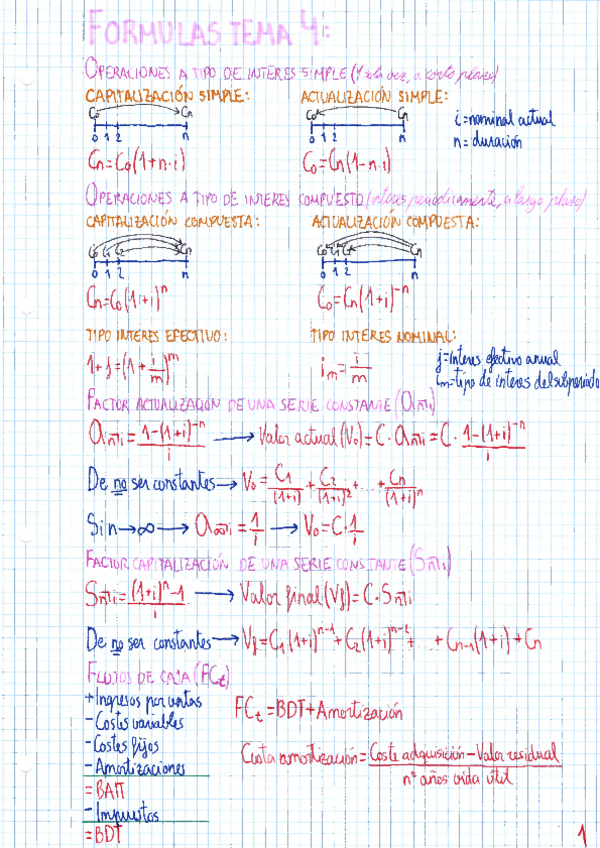 FORMULAS TEMA 4:
OPERACIONES A TIPO DE INTERES SIMPLE (1 sola vez, a corto plazo)
CAPITALIZACIÓN SIMPLE: ACTUALIZACIÓN SIMPLE:
C₀ Cn C₀ Cn i=nominal actual
0 1 2 n 0 1 2 n n=duración
Cn=C₀(1+n·i) C₀=Cn(1-n·i)
OPERACIONES A TIPO DE INTERES COMPUESTO (interes periodicamente, a largo plazo)
CAPITALIZACIÓN COMPUESTA: ACTUALIZACIÓN COMPUESTA:
C₀ C₁ C₂ Cn C₀ C₁ C₂ Cn
0 1 2 n 0 1 2 n
Cn=C₀(1+i)ⁿ C₀=Cn(1+i)⁻ⁿ
TIPO INTERES EFECTIVO: TIPO INTERES NOMINAL:
1+j=(1+i/m)ᵐ iₘ=i/m j=interes efectivo anual
iₘ=tipo de interes del subperiodo
FACTOR ACTUALIZACIÓN DE UNA SERIE CONSTANTE (an̅|i)
an̅|i=1-(1+i)⁻ⁿ/i → Valor actual (V₀)=C·an̅|i=C·1-(1+i)⁻ⁿ/i
De no ser constantes → V₀=C₁/(1+i)+C₂/(1+i)²+...+Cn/(1+i)ⁿ
Si n→∞ → a∞̅|i=1/i → V₀=C·1/i
FACTOR CAPITALIZACIÓN DE UNA SERIE CONSTANTE (Sn̅|i)
Sn̅|i=(1+i)ⁿ-1/i → Valor final (Vf)=C·Sn̅|i
De no ser constantes → Vf=C₁(1+i)ⁿ⁻¹+C₂(1+i)ⁿ⁻²+...+Cn-₁(1+i)+Cn
FLUJOS DE CAJA (FCt)
+Ingresos por ventas
-Costes variables FCt=BDT+Amortización
-Costes fijos
-Amortizaciones Cuota amortización=Coste adquisición-Valor residual/nº años vida útil
=BAIT
-Impuestos
=BDT
1